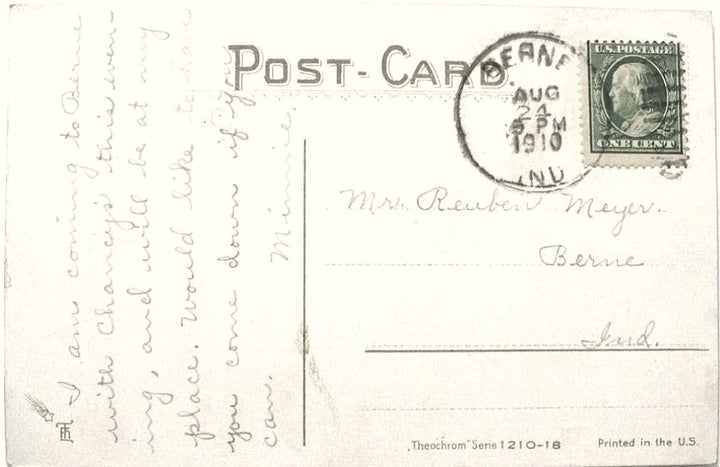 POST-CARD
BERNE
AUG
24
5 PM
1910
IND
U.S. POSTAGE
ONE CENT
I am coming to Berne
with Chancy's this even-
ing, and will be at my
place. Would like to have
you come down if you
can.
Minnie
Mrs. Reuben Meyer.
Berne
Ind.
"Theochrom" Serie 1210-18
Printed in the U.S.